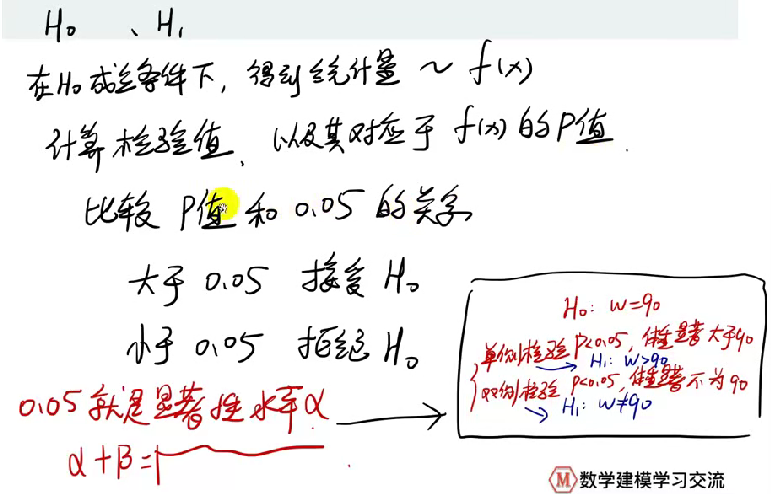 H₀ 、H₁
在H₀成立条件下，得到统计量 ~ f(x)
计算检验值、以及其对应于 f(x) 的P值.
比较 P值和 0.05 的关系
大于 0.05 接受 H₀
小于 0.05 拒绝 H₀
0.05就是显著性水平α
α+β=1
H₀: w=90
单侧检验 P<0.05, 体重显著大于90
H₁: w>90
双侧检验 P<0.05, 体重显著不为90
H₁: w≠90
M 数学建模学习交流